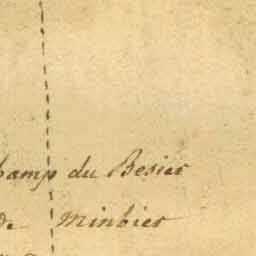 hamp du Besier
de Minbier